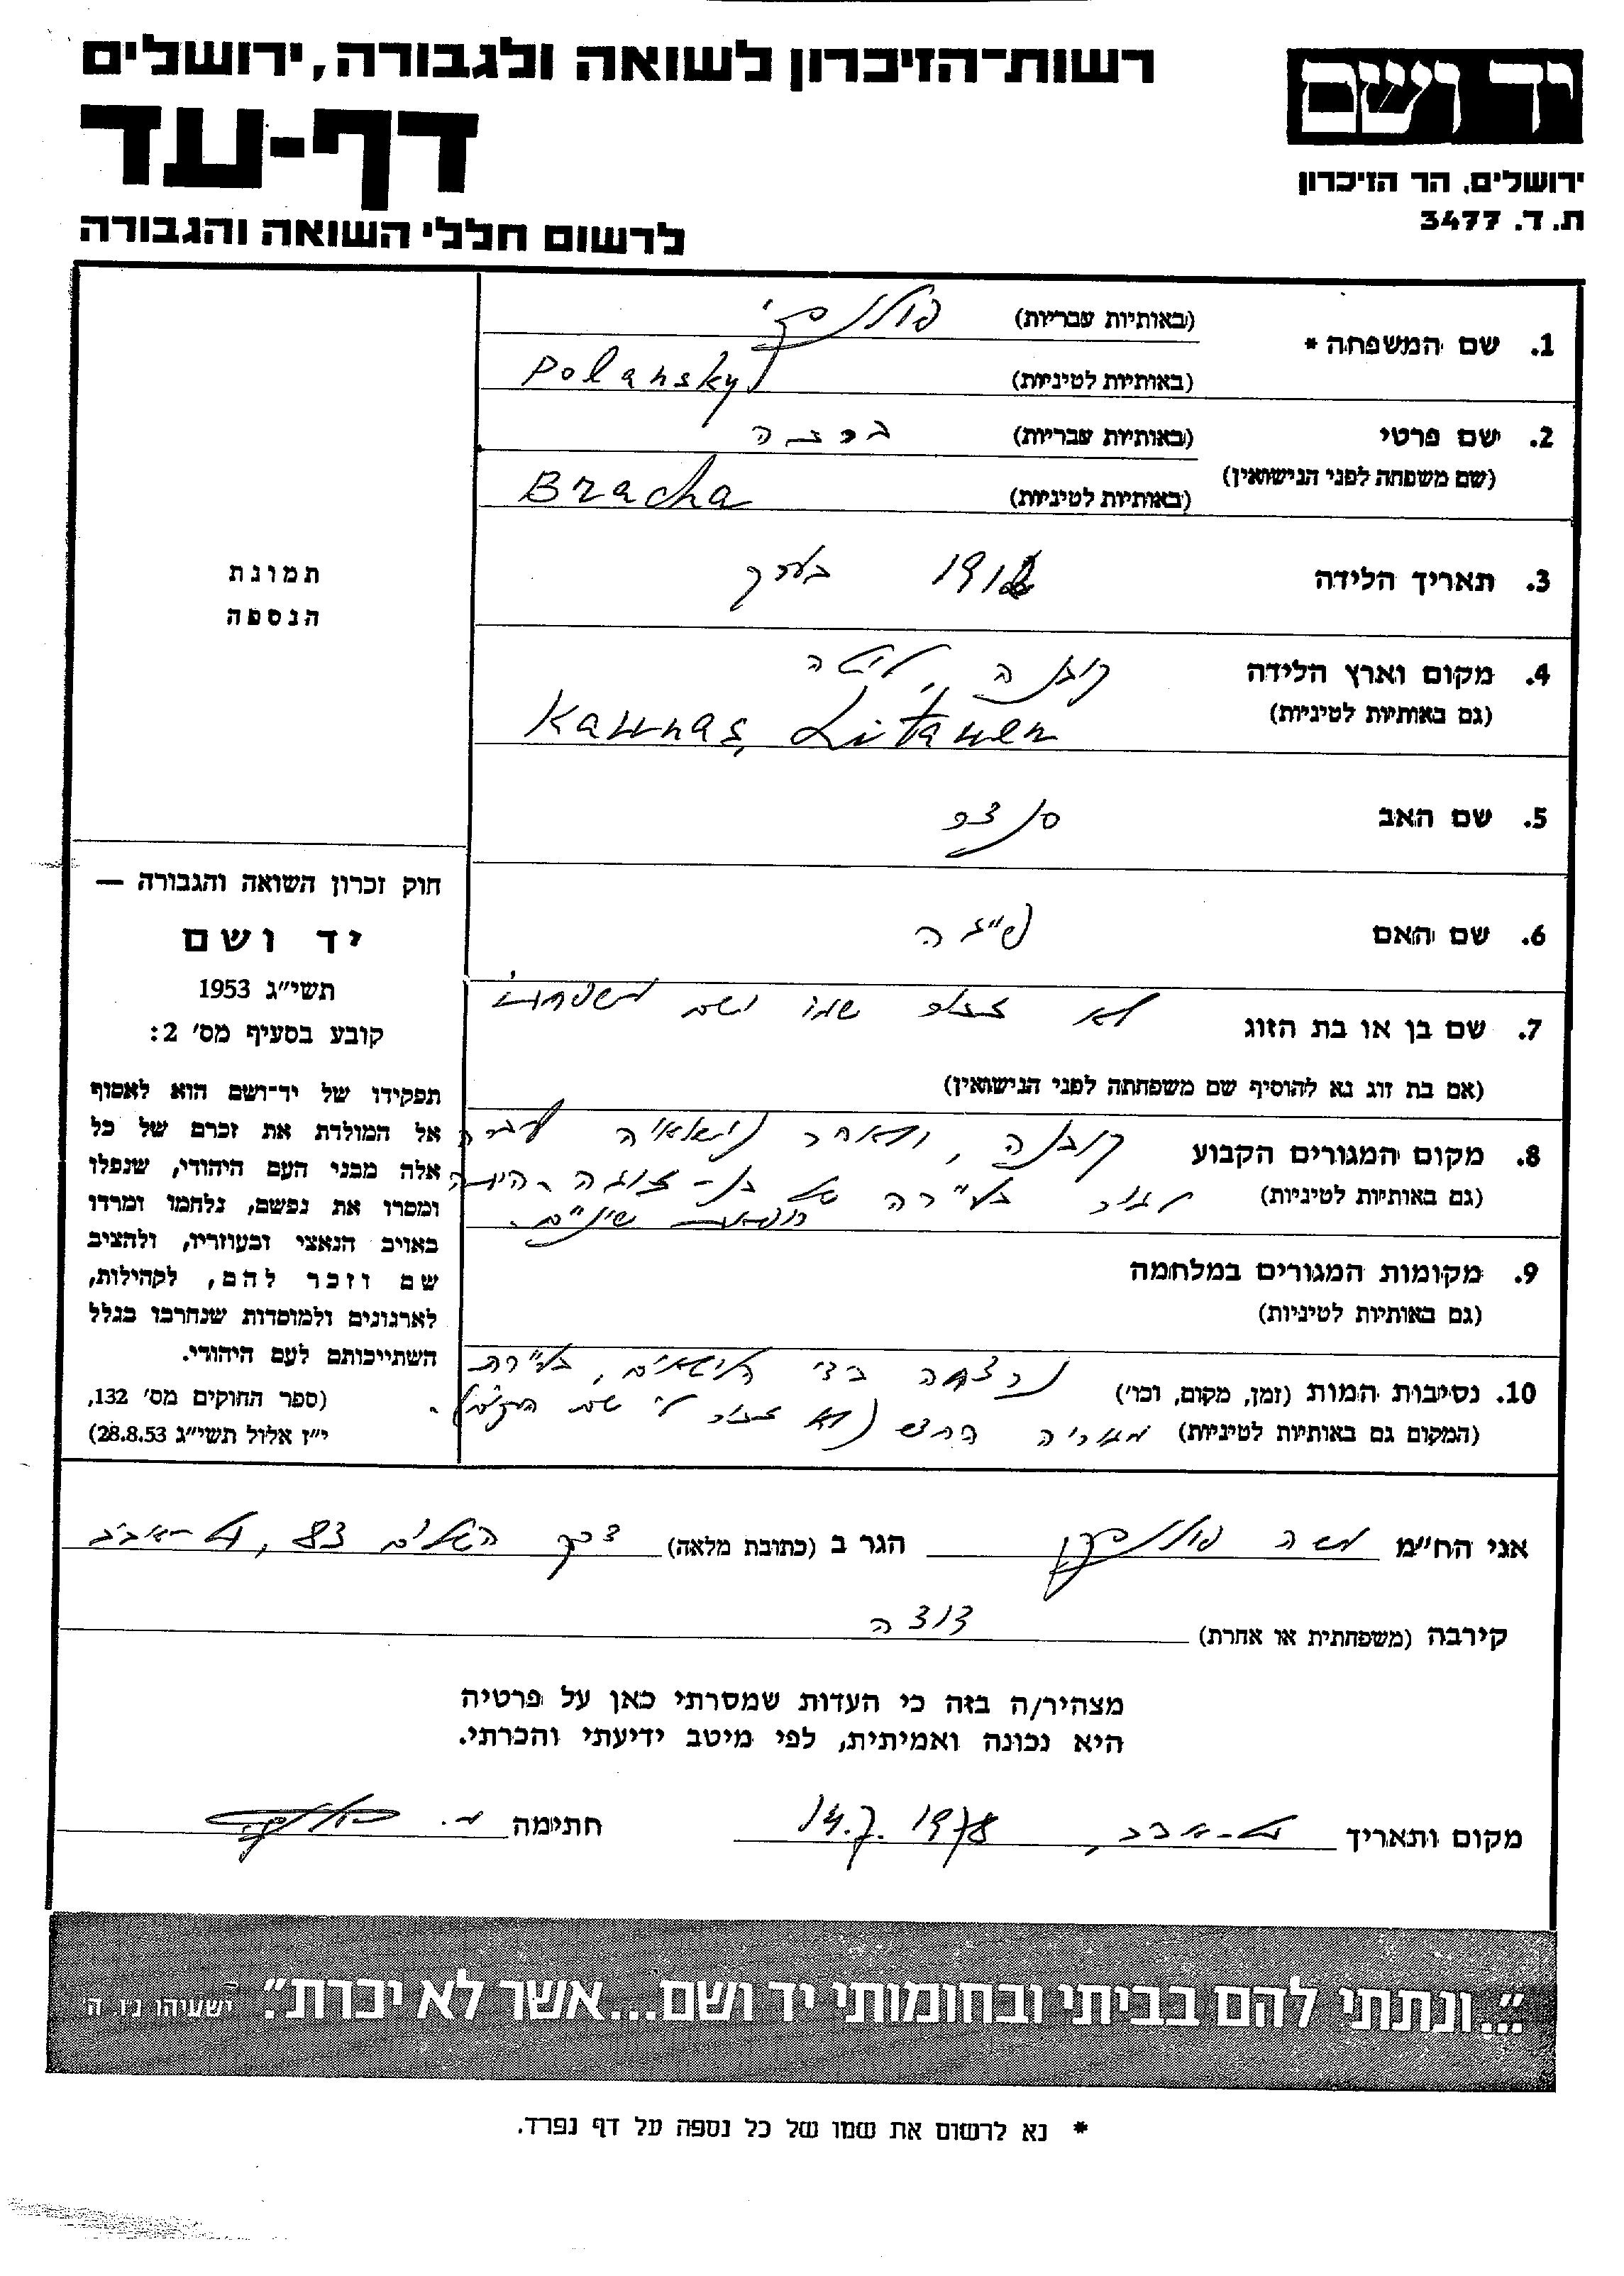 יד ושם
רשות־הזיכרון לשואה ולגבורה, ירושלים
דף-עד
ירושלים, הר הזיכרון
ת.ד. 3477
לרשום חללי השואה והגבורה
1. שם המשפחה *
(באותיות עבריות) פולנסקי
(באותיות לטיניות) Polansky
2. שם פרטי
(שם משפחה לפני הנישואין)
(באותיות עבריות) ברכה
(באותיות לטיניות) Bracha
3. תאריך הלידה 1912 בערך
4. מקום וארץ הלידה קובנה, ליטה
(גם באותיות לטיניות) Kaunas, Litauen
5. שם האב
6. שם האם
7. שם בן או בת הזוג לא זכור שמו ושם משפחתו
(אם בת זוג נא להוסיף שם משפחתה לפני הנישואין)
8. מקום המגורים הקבוע קובנה, ולאחר נישואיה עברה
(גם באותיות לטיניות) לגור בעירה של בן-זוגה. היתה
רופאת שיניים.
9. מקומות המגורים במלחמה
(גם באותיות לטיניות)
10. נסיבות המות (זמן, מקום, וכו') נרצחה בידי הליטאים, בעירת
(המקום גם באותיות לטיניות) מגוריה החדש (לא זכור לי שם המקום).
תמונת
הנספה
חוק זכרון השואה והגבורה —
יד ושם
תשי״ג 1953
קובע בסעיף מס׳ 2:
תפקידו של יד־ושם הוא לאסוף
אל המולדת את זכרם של כל
אלה מבני העם היהודי, שנפלו
ומסרו את נפשם, נלחמו ומרדו
באויב הנאצי ובעוזריו, ולהציב
שם וזכר להם, לקהילות,
לארגונים ולמוסדות שנחרבו בגלל
השתייכותם לעם היהודי.
(ספר החוקים מס׳ 132,
י״ז אלול תשי״ג 28.8.53)
אני הח״מ משה פולנסקי הגר ב (כתובת מלאה) דרך השלום 83, תל-אביב
קירבה (משפחתית או אחרת) דודה
מצהיר/ה בזה כי העדות שמסרתי כאן על פרטיה
היא נכונה ואמיתית, לפי מיטב ידיעתי והכרתי.
מקום ותאריך תל-אביב, 14.7.1978 חתימה מ. פולנסקי
״...ונתתי להם בביתי ובחומותי יד ושם...אשר לא יכרת״. ישעיהו נו. ה
* נא לרשום את שמו של כל נספה על דף נפרד.